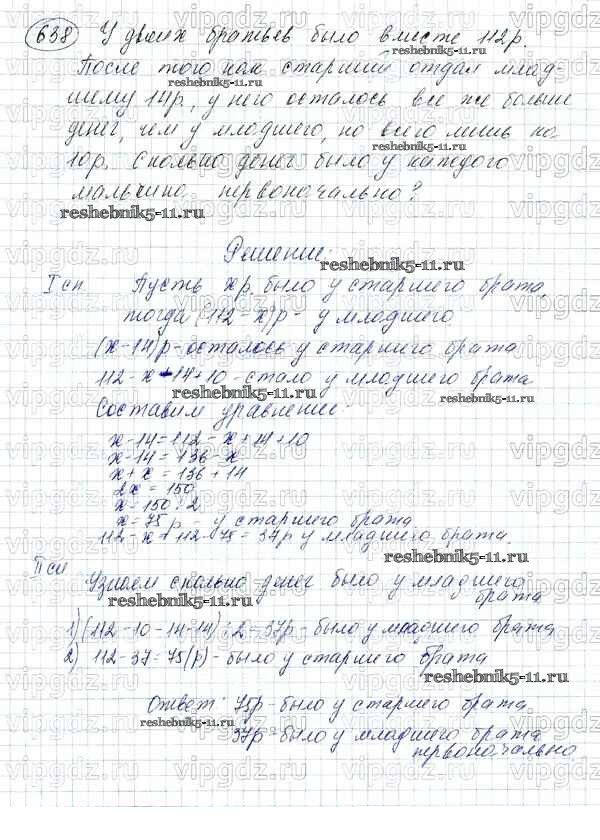 638 У двоих братьев было вместе 112р.
После того как старший отдал млад-
шему 14р, у него осталось все же больше
денег, чем у младшего, но всего лишь на
10р. Сколько денег было у каждого
мальчика первоначально?
reshebnik5-11.ru
Решение:
reshebnik5-11.ru
I сп. Пусть xр. было у старшего брата,
тогда (112-x)р - у младшего
(x-14)р-осталось у старшего брата
112-x+14+10-стало у младшего брата
reshebnik5-11.ru
Составим уравнение:
x-14=112-x+14+10
x-14=136-x
x+x=136+14
2x=150
x=150:2
x=75р - у старшего брата
112-x=112-75=37р у младшего брата.
reshebnik5-11.ru
II сп Узнаем сколько денег было у младшего
брата
reshebnik5-11.ru
1) (112-10-14-14):2=37р-было у младшего брата
2) 112-37=75(р)-было у старшего брата
reshebnik5-11.ru
Ответ: 75р-было у старшего брата
reshebnik5-11.ru
37р-было у младшего брата
первоначально.